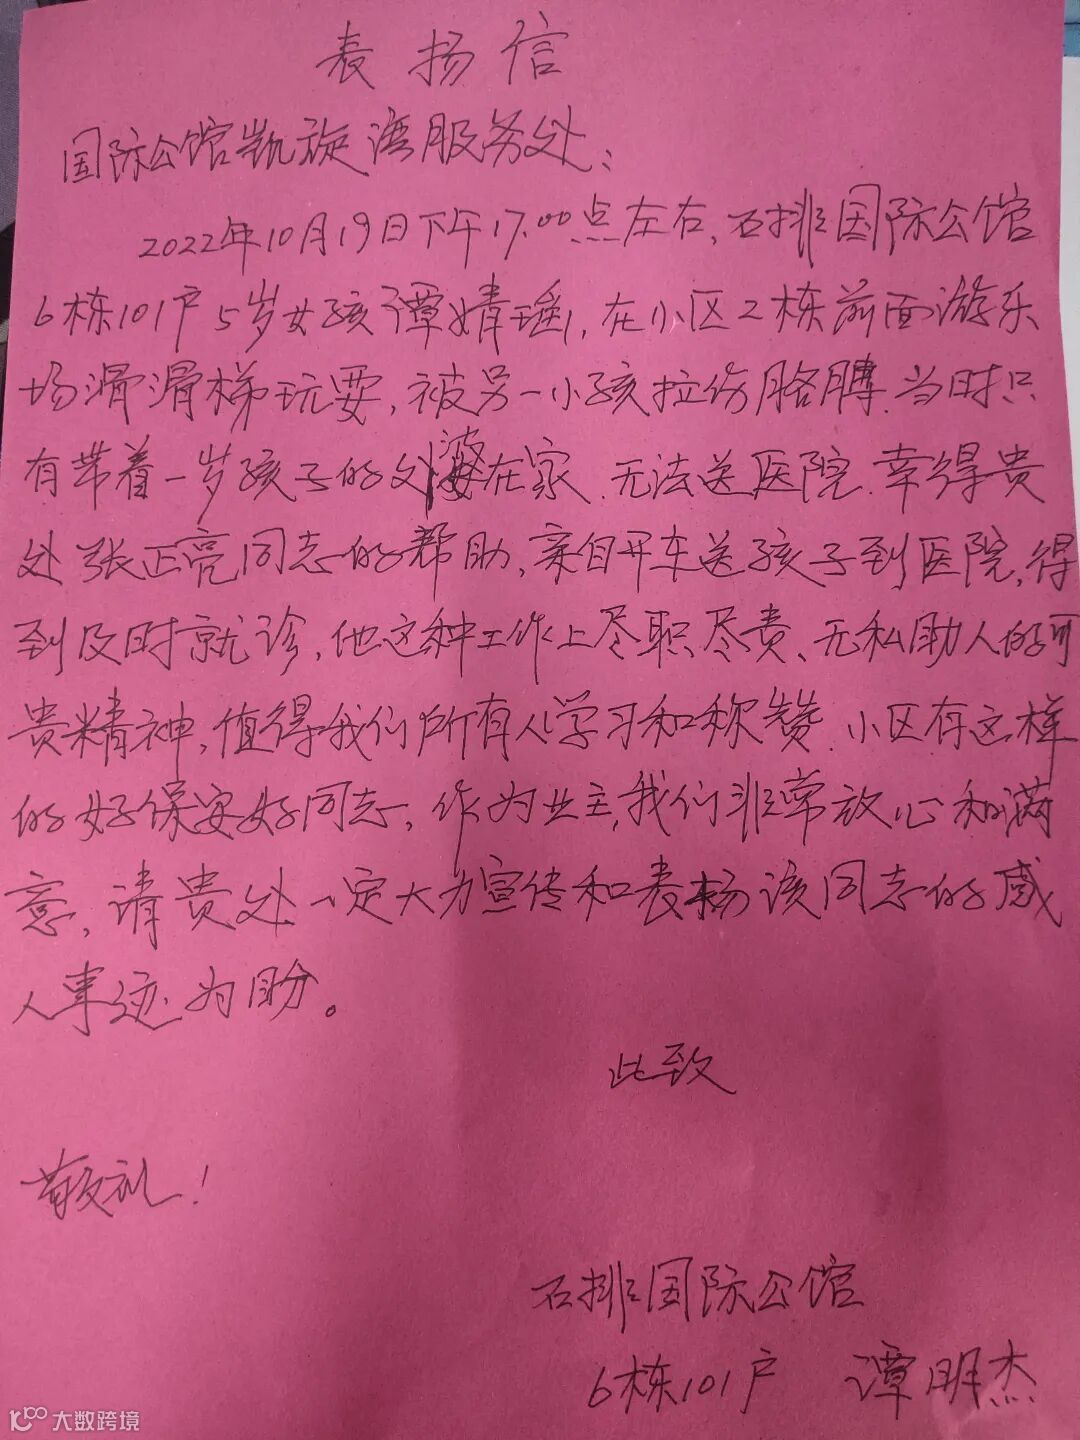 表扬信
国际公馆凯旋湾服务处:
2022年10月19日下午17.00点左右,石排国际公馆
6栋101户5岁女孩谭婧瑶,在小区2栋前面游乐
场滑滑梯玩耍,被另一小孩拉伤胳膊.当时只
有带着一岁孩子的外婆在家.无法送医院.幸得贵
处张正亮同志的帮助,亲自开车送孩子到医院,得
到及时就诊,他这种工作上尽职尽责、无私助人的可
贵精神,值得我们所有人学习和称赞.小区有这样
的好保安好同志,作为业主,我们非常放心和满
意,请贵处一定大力宣传和表扬该同志的感
人事迹为盼。
此致
敬礼!
石排国际公馆
6栋101户 谭明杰
大数跨境